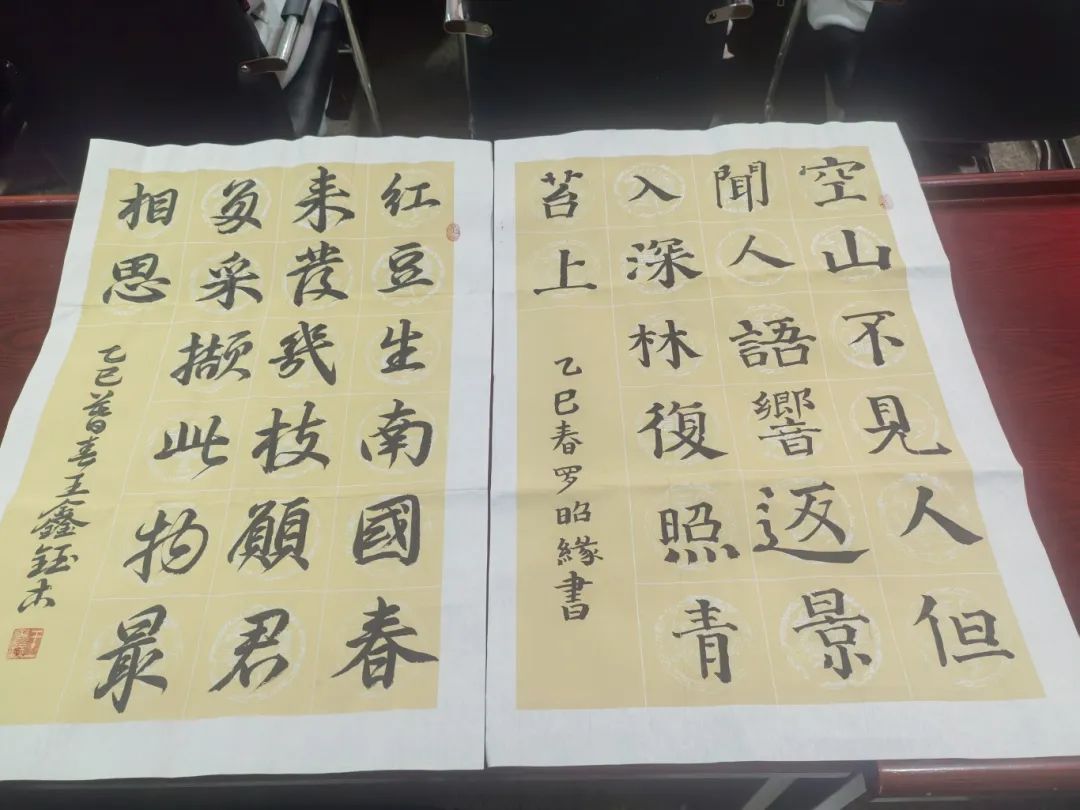 空山不見人但
聞人語響返景
入深林復照青
苔上
乙巳春罗昭緣書
红豆生南國春
来發幾枝願君
多采撷此物最
相思
乙巳暮春王鑫鈺